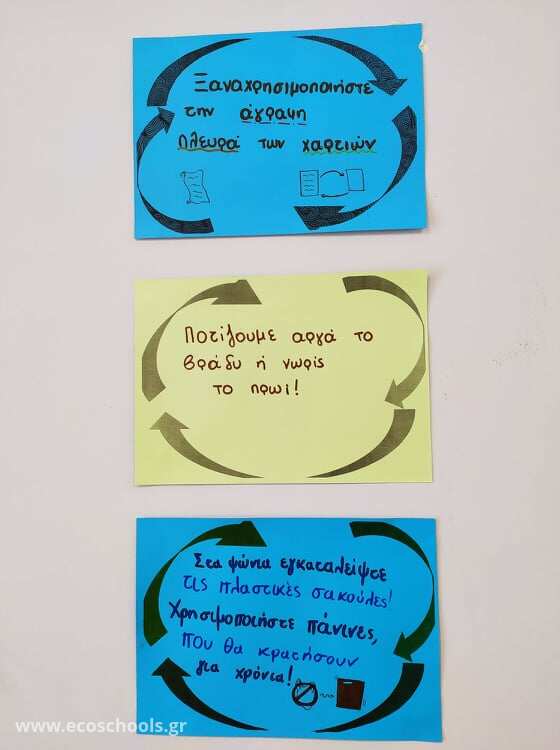 Ξαναχρησιμοποιήστε
την άγραφη
πλευρά των χαρτιών
Ποτίζουμε αργά το
βράδυ ή νωρίς
το πρωί!
Στα ψώνια εγκαταλείψτε
τις πλαστικές σακούλες!
Χρησιμοποιήστε πάνινες,
που θα κρατήσουν
για χρόνια!
www.ecoschools.gr